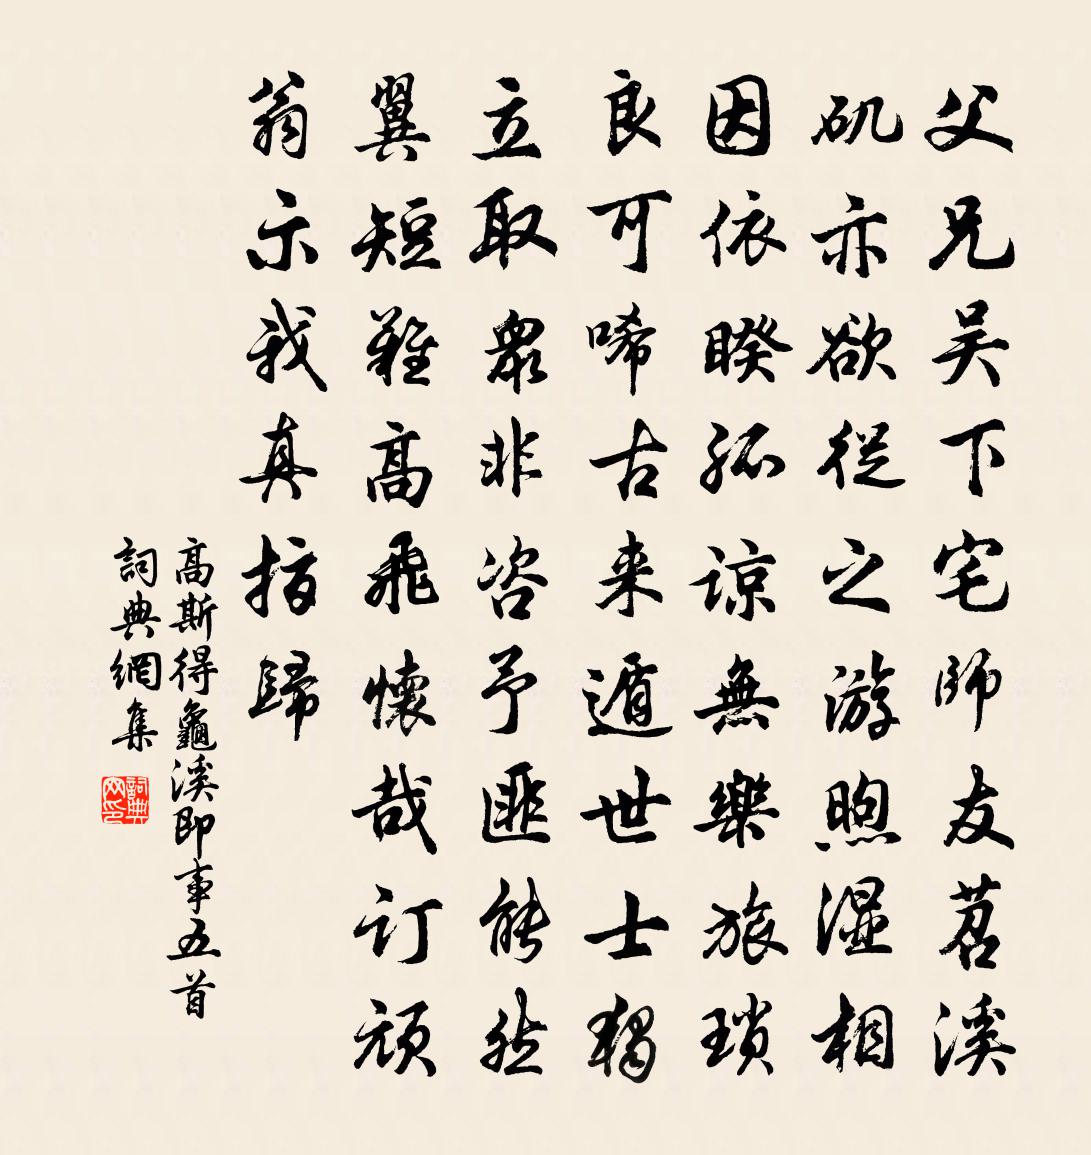 父兄吴下宅師友苕溪
矶亦欲從之游煦湿相
因依睽孤谅無樂旅琐
良可唏古来遁世士獨
立取衆非咨予匪能然
翼短難高飛懷哉订顽
翁示我真指歸
高斯得龜溪即事五首
詞典網集
詞典网印